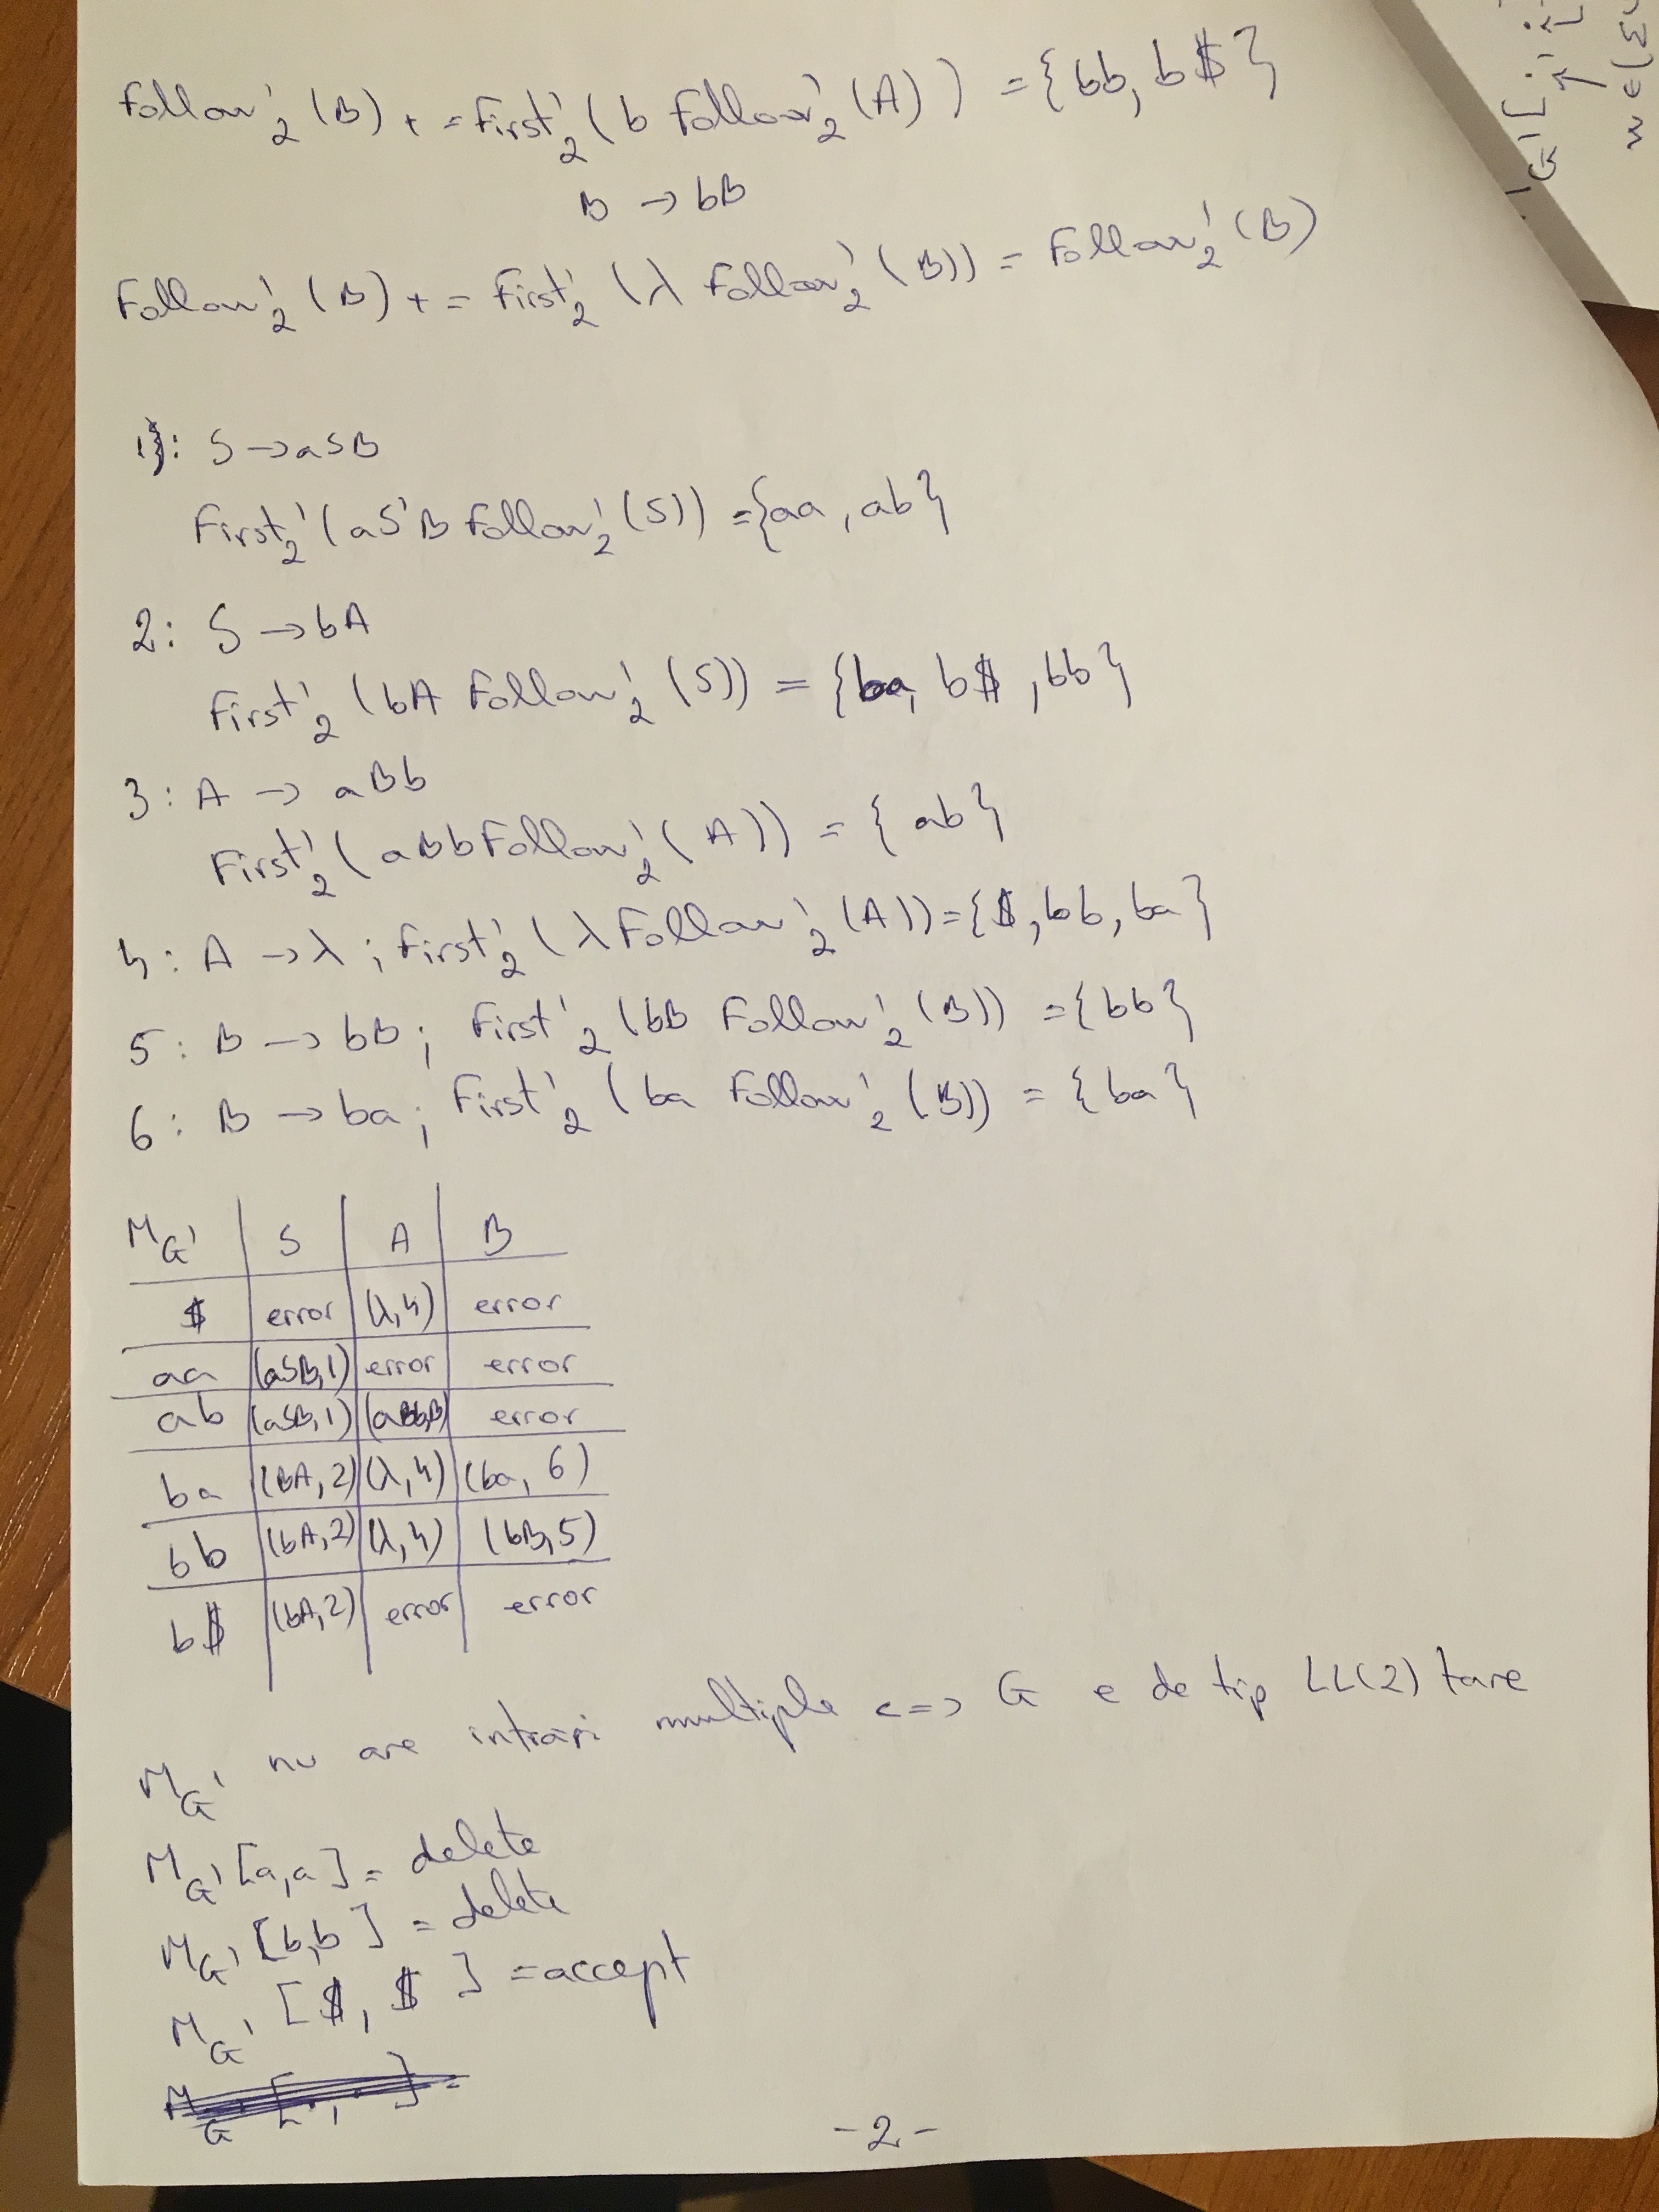 Follow'₂ (B) + = First'₂ ( b Follow'₂ (A) ) = {bb, b$}
B → bB
Follow'₂ (B) + = First'₂ (λ Follow'₂ (B)) = Follow'₂ (B)
1: S → aSB
First'₂ (aSB Follow'₂ (S)) = {aa, ab}
2: S → bA
First'₂ (bA Follow'₂ (S)) = {ba, b$, bb}
3: A → aBb
First'₂ (aBb Follow'₂ (A)) = {ab}
4: A → λ; First'₂ (λ Follow'₂ (A)) = {$, bb, ba}
5: B → bB; First'₂ (bB Follow'₂ (B)) = {bb}
6: B → ba; First'₂ (ba Follow'₂ (B)) = {ba}
M_G' S A B
$ error (λ,4) error
aa (aSB,1) error error
ab (aSB,1) (aBb,3) error
ba (bA,2) (λ,4) (ba, 6)
bb (bA,2) (λ,4) (bB,5)
b$ (bA,2) error error
M_G' nu are intrări multiple <=> G e de tip LL(2) tare
M_G' [a,a] = delete
M_G' [b,b] = delete
M_G' [$, $] = accept
-2-